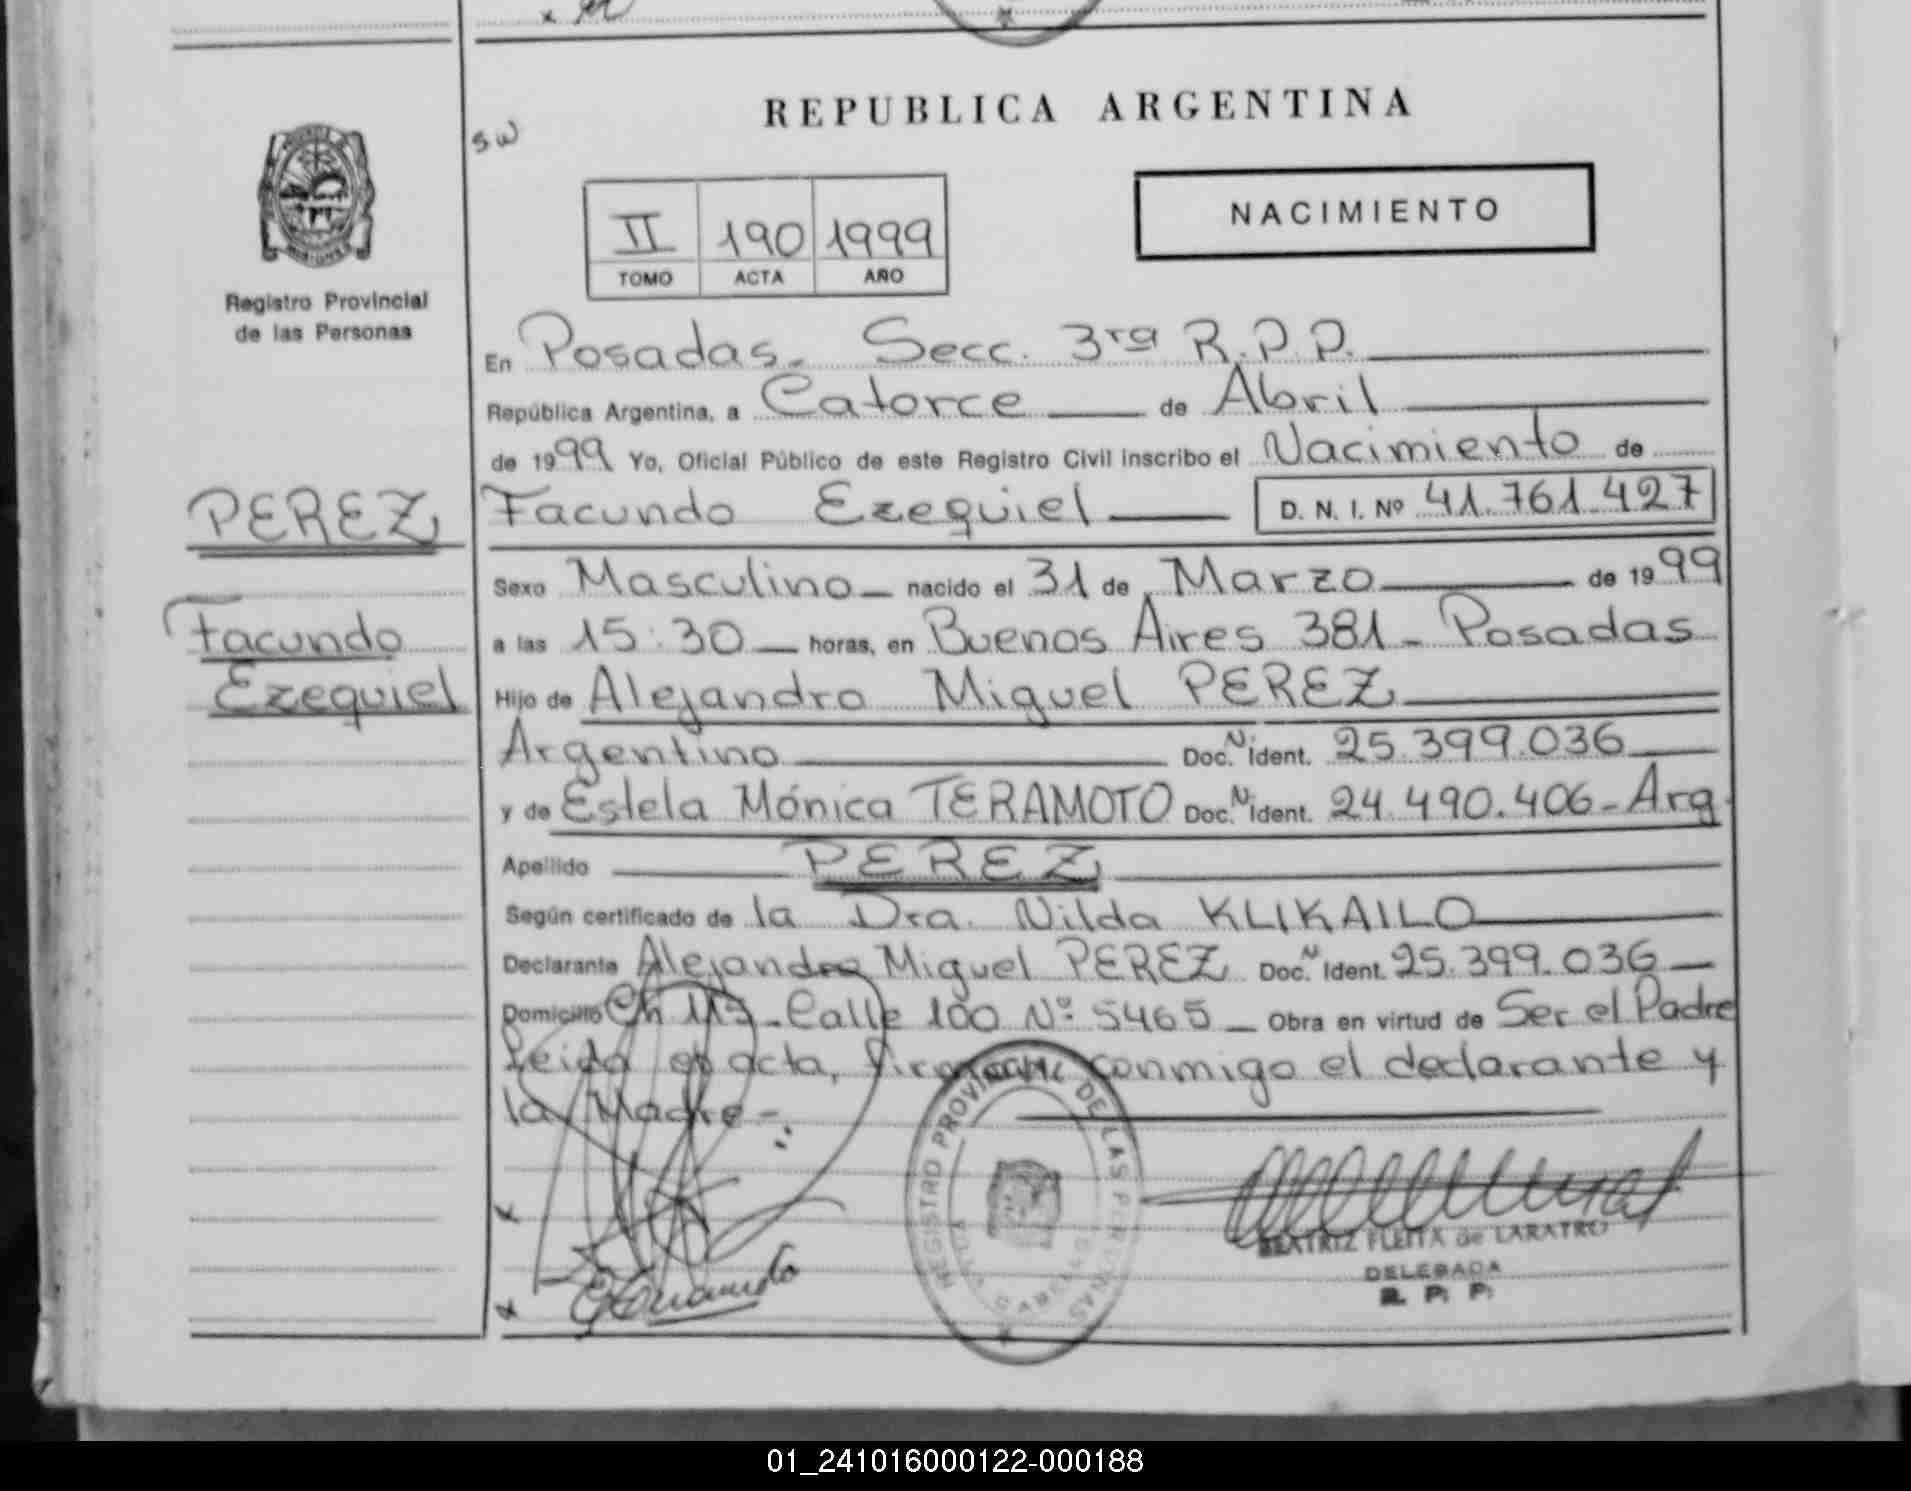 REPUBLICA ARGENTINA
SW
NACIMIENTO
II 190 1999
TOMO ACTA AÑO
Registro Provincial
de las Personas
En Posadas. Secc. 3ra R.P.P.
República Argentina, a Catorce de Abril
de 1999 Yo, Oficial Público de este Registro Civil inscribo el Nacimiento de
PEREZ
Facundo Ezequiel D. N. I. Nº 41.761.427
Sexo Masculino nacido el 31 de Marzo de 1999
Facundo
Ezequiel
a las 15:30 horas, en Buenos Aires 381 - Posadas
Hijo de Alejandro Miguel PEREZ
Argentino Doc. N. Ident. 25.399.036
y de Estela Mónica TERAMOTO Doc. N. Ident. 24.490.406 - Arg.
Apellido PEREZ
Según certificado de la Dra. Nilda KLIKAILO
Declarante Alejandro Miguel PEREZ Doc. N. Ident. 25.399.036
Domicilio Ch 115 - Calle 100 Nº 5465 Obra en virtud de Ser el Padre
Leida el acta, firman conmigo el declarante y
la Madre -
REGISTRO PROVINCIAL DE LAS PERSONAS
BEATRIZ FLEITA de LARATRO
DELEGADA
R. P. P.
01_241016000122-000188